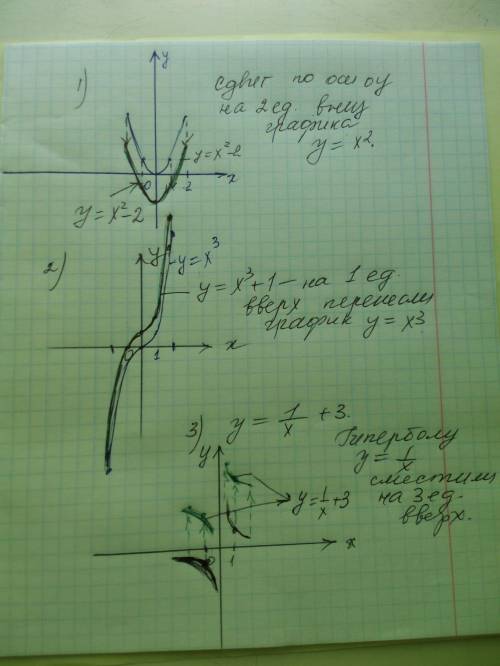 1)
y
сдвиг по оси оу
на 2 ед. вниз
графика
y = x².
y = x²-2
0 2 x
y = x²-2
2)
y
y = x³
y = x³+1 - на 1 ед.
вверх перенесли
график y = x³
0 1 x
3) y = 1/x + 3.
y
Гиперболу
y = 1/x
сместили
на 3 ед.
вверх.
y = 1/x + 3
0 1 x